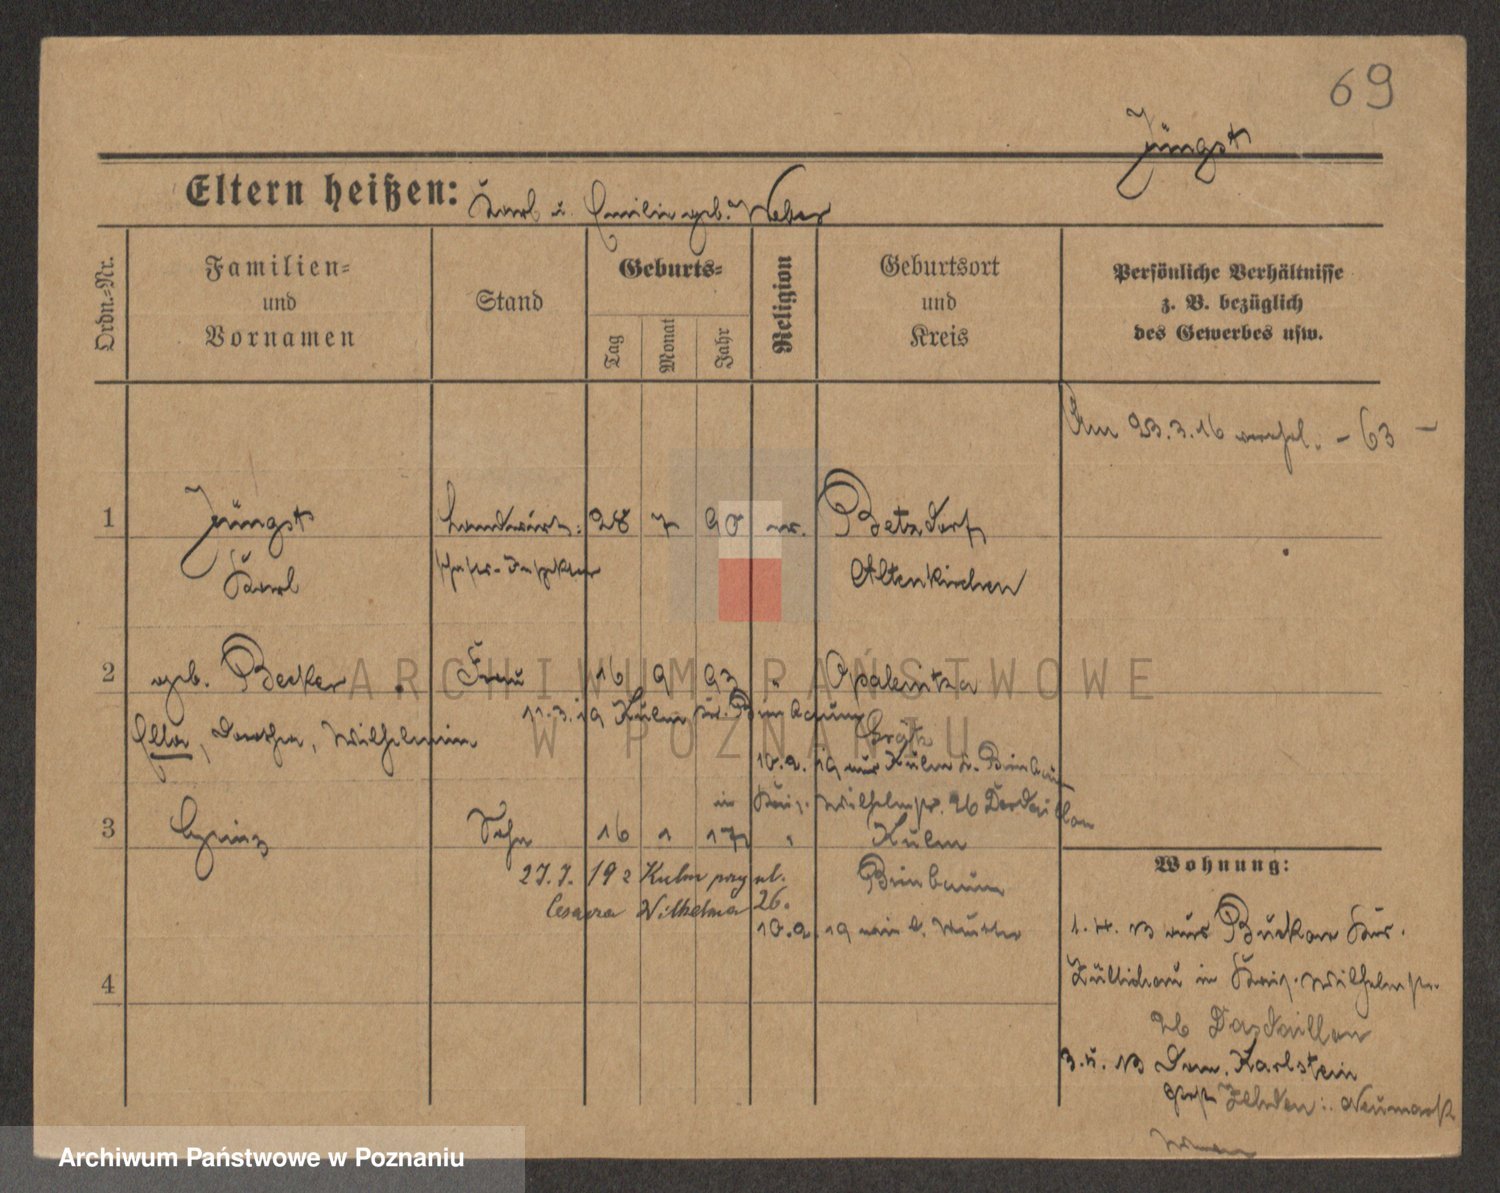 69
Jüngst
Eltern heißen: Karl u. Emilie geb. Weber
Ordn.=Nr.
Familien=
und
Vornamen
Stand
Geburts=
Tag
Monat
Jahr
Religion
Geburtsort
und
Kreis
Persönliche Verhältnisse
z. B. bezüglich
des Gewerbes usw.
Am 23.3.16 verehel. - 63 -
1 Jüngst Landwirt= 28 7 90 ev. Betzdorf
Karl schafts-Inspektor Altenkirchen
2 geb. Becker Frau 16 9 93 " Opalenitza
11.3.19 Kulm Kr. Birnbaum
Ella, Dorothea, Wilhelmine Grätz
10.9.19 aus Kulm Kr. Birnbaum
in Kais. Wilhelmstr. 26
3 Heinz Sohn 16 1 17 " Kulm
Birnbaum
27.7. 192 Kulm przy ul.
Cesarza Wilhelma 26.
10.9.19 wie b. Mutter
4
Wohnung:
1.4.13 aus Kr.
Züllichau in Kais. Wilhelmstr.
26
13 Dom. Karlstein
Post Zehden Neumark
ARCHIWUM PAŃSTWOWE
W POZNANIU
Archiwum Państwowe w Poznaniu